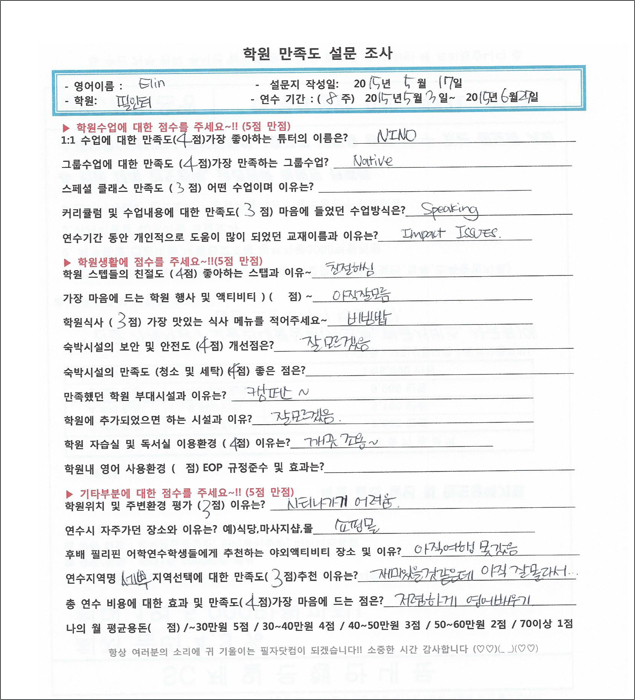 학원 만족도 설문 조사
- 영어이름 : Elin - 설문지 작성일: 2015년 5월 17일
- 학원: 필인터 - 연수 기간 : ( 8 주) 2015년 5월 3일~ 2015년 6월 27일
▶ 학원수업에 대한 점수를 주세요~!! (5점 만점)
1:1 수업에 대한 만족도(4점)가장 좋아하는 튜터의 이름은? NINO
그룹수업에 대한 만족도 (4점)가장 만족하는 그룹수업? Native
스페셜 클래스 만족도 ( 3 점) 어떤 수업이며 이유는?
커리큘럼 및 수업내용에 대한 만족도( 3 점) 마음에 들었던 수업방식은? Speaking
연수기간 동안 개인적으로 도움이 많이 되었던 교재이름과 이유는? Impact Issues.
▶ 학원생활에 점수를 주세요~!!(5점 만점)
학원 스텝들의 친절도 (4점) 좋아하는 스탭과 이유~ 친절하심
가장 마음에 드는 학원 행사 및 액티비티 ) ( 점) ~ 아직잘모름
학원식사 ( 3점) 가장 맛있는 식사 메뉴를 적어주세요~ 비빔밥
숙박시설의 보안 및 안전도 (4점) 개선점은? 잘모르겠음
숙박시설의 만족도 (청소 및 세탁) (4점) 좋은 점은?
만족했던 학원 부대시설과 이유는? 캠퍼스 ~
학원에 추가되었으면 하는 시설과 이유? 잘모르겠음.
학원 자습실 및 독서실 이용환경 ( 4점) 이유는? 깨끗 조용~
학원내 영어 사용환경 ( 점) EOP 규정준수 및 효과는?
▶ 기타부분에 대한 점수를 주세요~!! (5점 만점)
학원위치 및 주변환경 평가 (3점) 이유는? 시티나가기 어려움.
연수시 자주가던 장소와 이유는? 예)식당,마사지샵,몰 쇼핑몰
후배 필리핀 어학연수학생들에게 추천하는 야외액티비티 장소 및 이유? 아직여행 못갔음
연수지역명 세부 지역선택에 대한 만족도( 3점)추천 이유는? 재미있을것같은데 아직 잘몰라서...
총 연수 비용에 대한 효과 및 만족도( 4점)가장 마음에 드는 점은? 저렴하게 영어배우기
나의 월 평균용돈( 점) /~30만원 5점 / 30~40만원 4점 / 40~50만원 3점 / 50~60만원 2점 / 70이상 1점
항상 여러분의 소리에 귀 기울이는 필자닷컴이 되겠습니다!! 소중한 시간 감사합니다 (♡♡)(_ _)(♡♡)